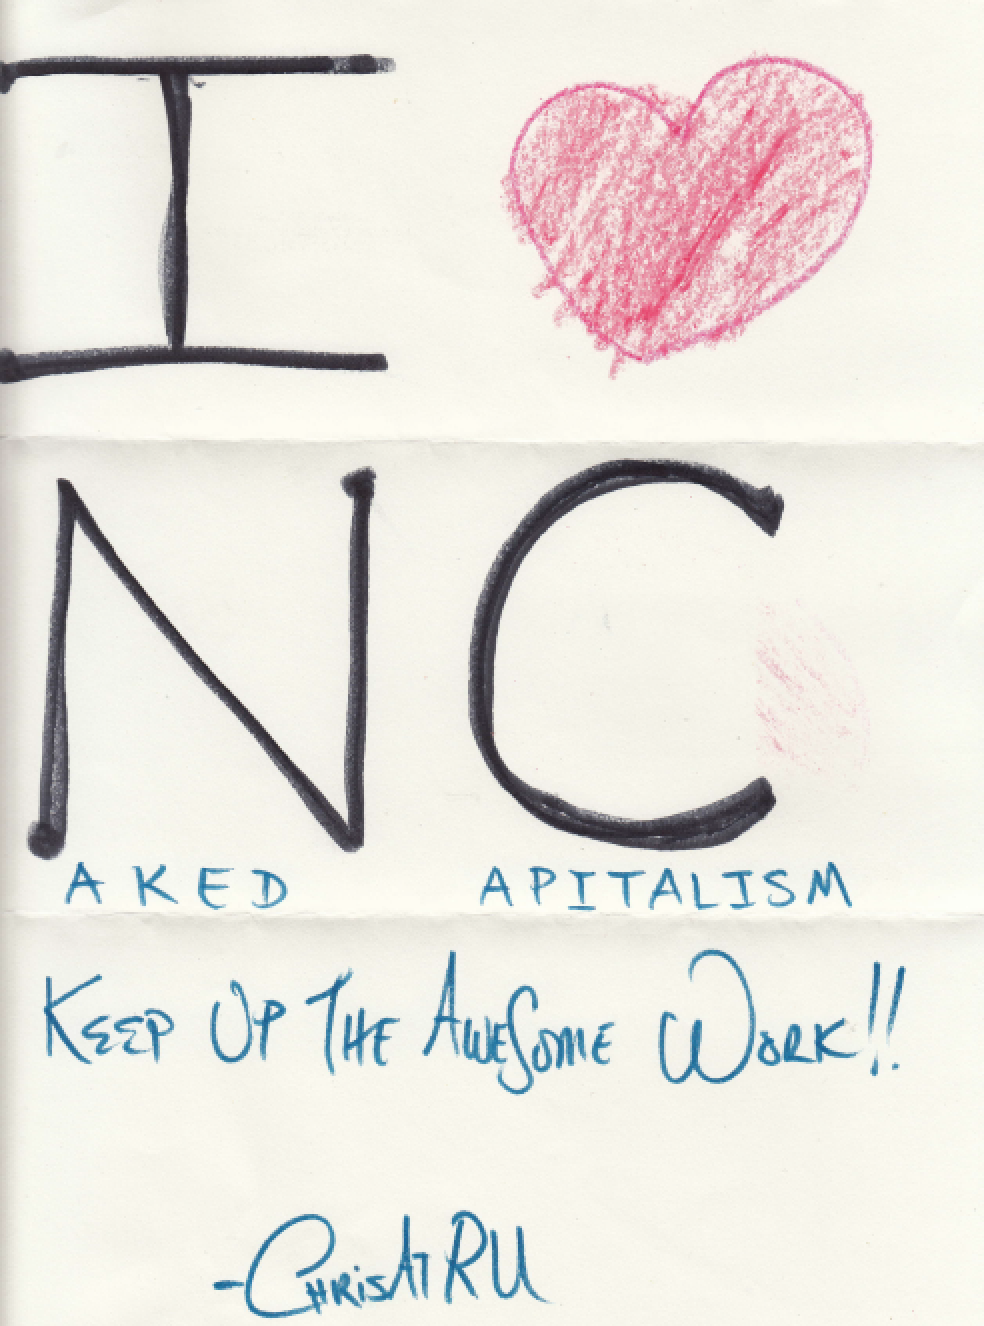 I ♥
N C
AKED APITALISM
KEEP UP THE AWESOME WORK!!
-CHRISATRU